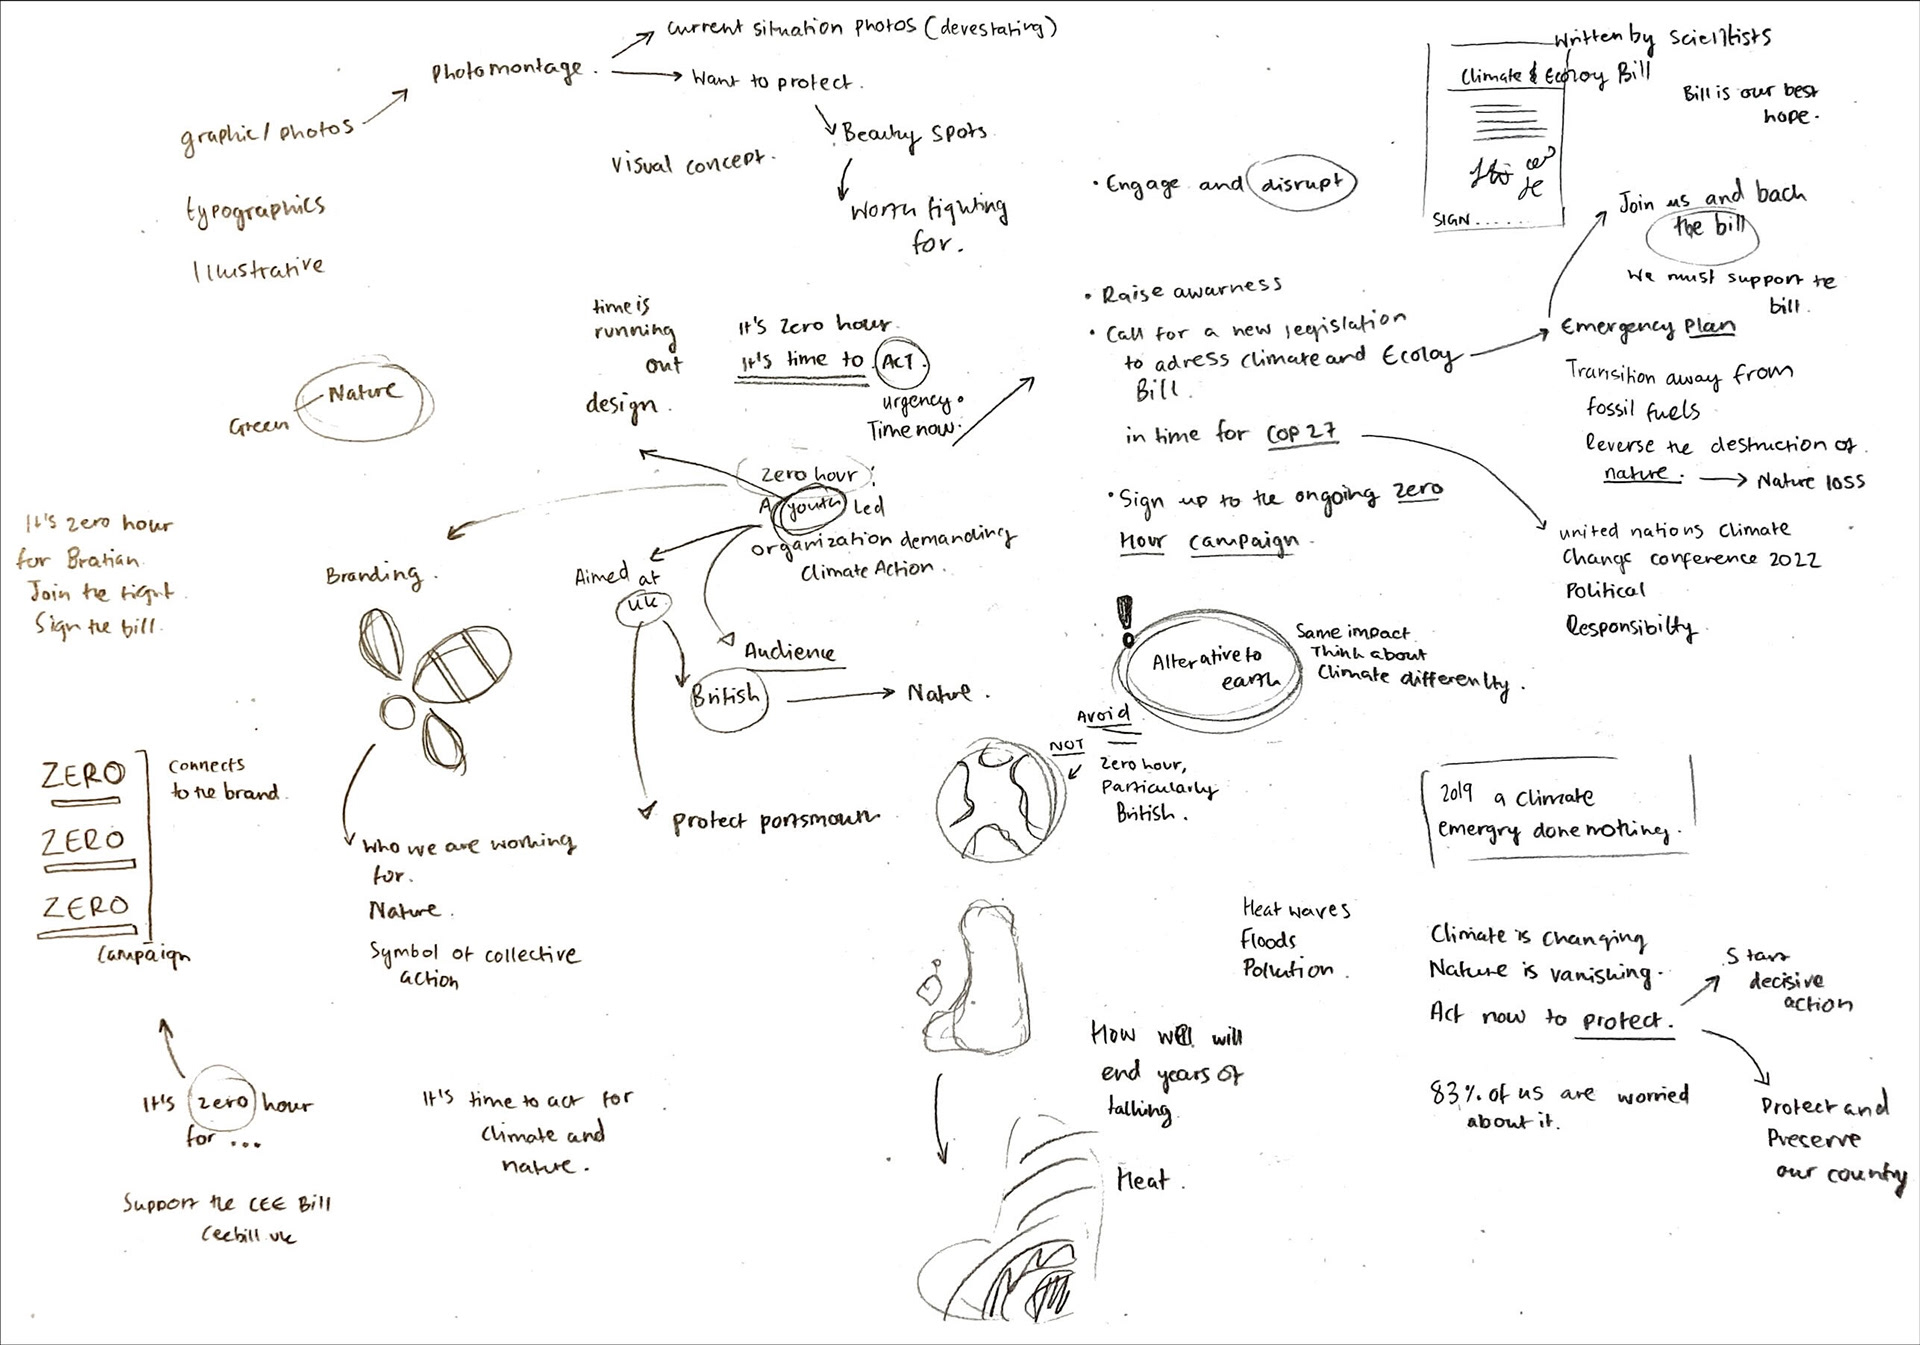 Current situation photos (devestating)
Photomontage.
Want to protect.
graphic / photos
Beauty spots
Visual concept.
typographics
Worth fighting
for.
Illustrative
Written by Scientists
Climate & Ecoloy Bill
Bill is our best
hope.
SIGN......
• Engage and disrupt
Join us and back
the bill
We must support the
bill.
• Raise awarness
• Call for a new legislation
to adress climate and Ecoloy
Bill.
in time for COP 27
• Sign up to the ongoing zero
Hour campaign.
Emergency Plan
Transition away from
fossil fuels
Reverse the destruction of
nature.
Nature loss
united nations Climate
Change conference 2022
Political
Responsibilty
time is
running
out
design.
It's Zero hour.
It's time to ACT.
urgency.
Time now.
Nature
Green
Zero hour:
A youth Led
organization demanding
Climate Action.
It's zero hour
for Bratian.
Join the fight.
Sign the bill.
Branding.
Aimed at
UK
Audience
British
Nature.
Protect portsmouth
!
Alterative to
earth
Same impact
Think about
Climate differently.
Avoid
NOT
Zero hour,
Particularly
British.
ZERO
ZERO
ZERO
Connects
to the brand.
Campaign
Who we are working
for.
Nature.
Symbol of collective
action
2019 a climate
emergry done nothing.
Heat waves
Floods
Pollution.
Climate is changing
Nature is vanishing.
Act now to protect.
Start
decisive
action
How we will
end years of
talking.
83% of us are worried
about it.
Protect and
Preserve
our country
Heat.
It's zero hour
for ...
It's time to act for
climate and
nature.
Support the CEE Bill
Ceebill.uk